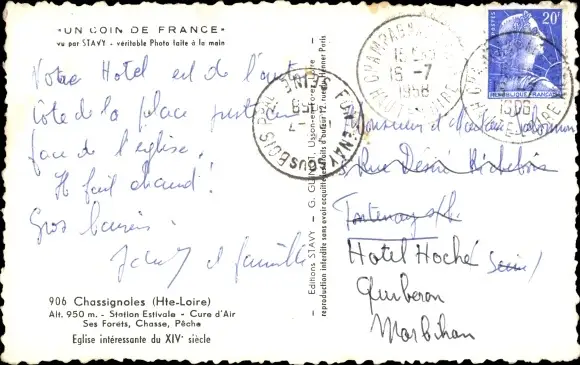 "UN COIN DE FRANCE"
vu par STAVY - véritable Photo faite à la main
Votre Hotel est de l'autre
côté de la place juste en
face de l'église.
Il fait chaud!
Gros baisers.
et famille
906 Chassignoles (Hte-Loire)
Alt. 950 m. - Station Estivale - Cure d'Air
Ses Forêts, Chasse, Pêche
Eglise intéressante du XIVe siècle
Editions STAVY - G. Usson-en-Forez Loire
reproduction interdite sans avoir acquitté les droits d'auteur
FONTENAY SOUS BOIS
SEINE
16-7
1958
POSTES
20F
REPUBLIQUE FRANÇAISE
Monsieur et Madame
Rue Désiré Richebois
Fontenay s/s
Hotel Hoche
Seine
Quiberon
Morbihan